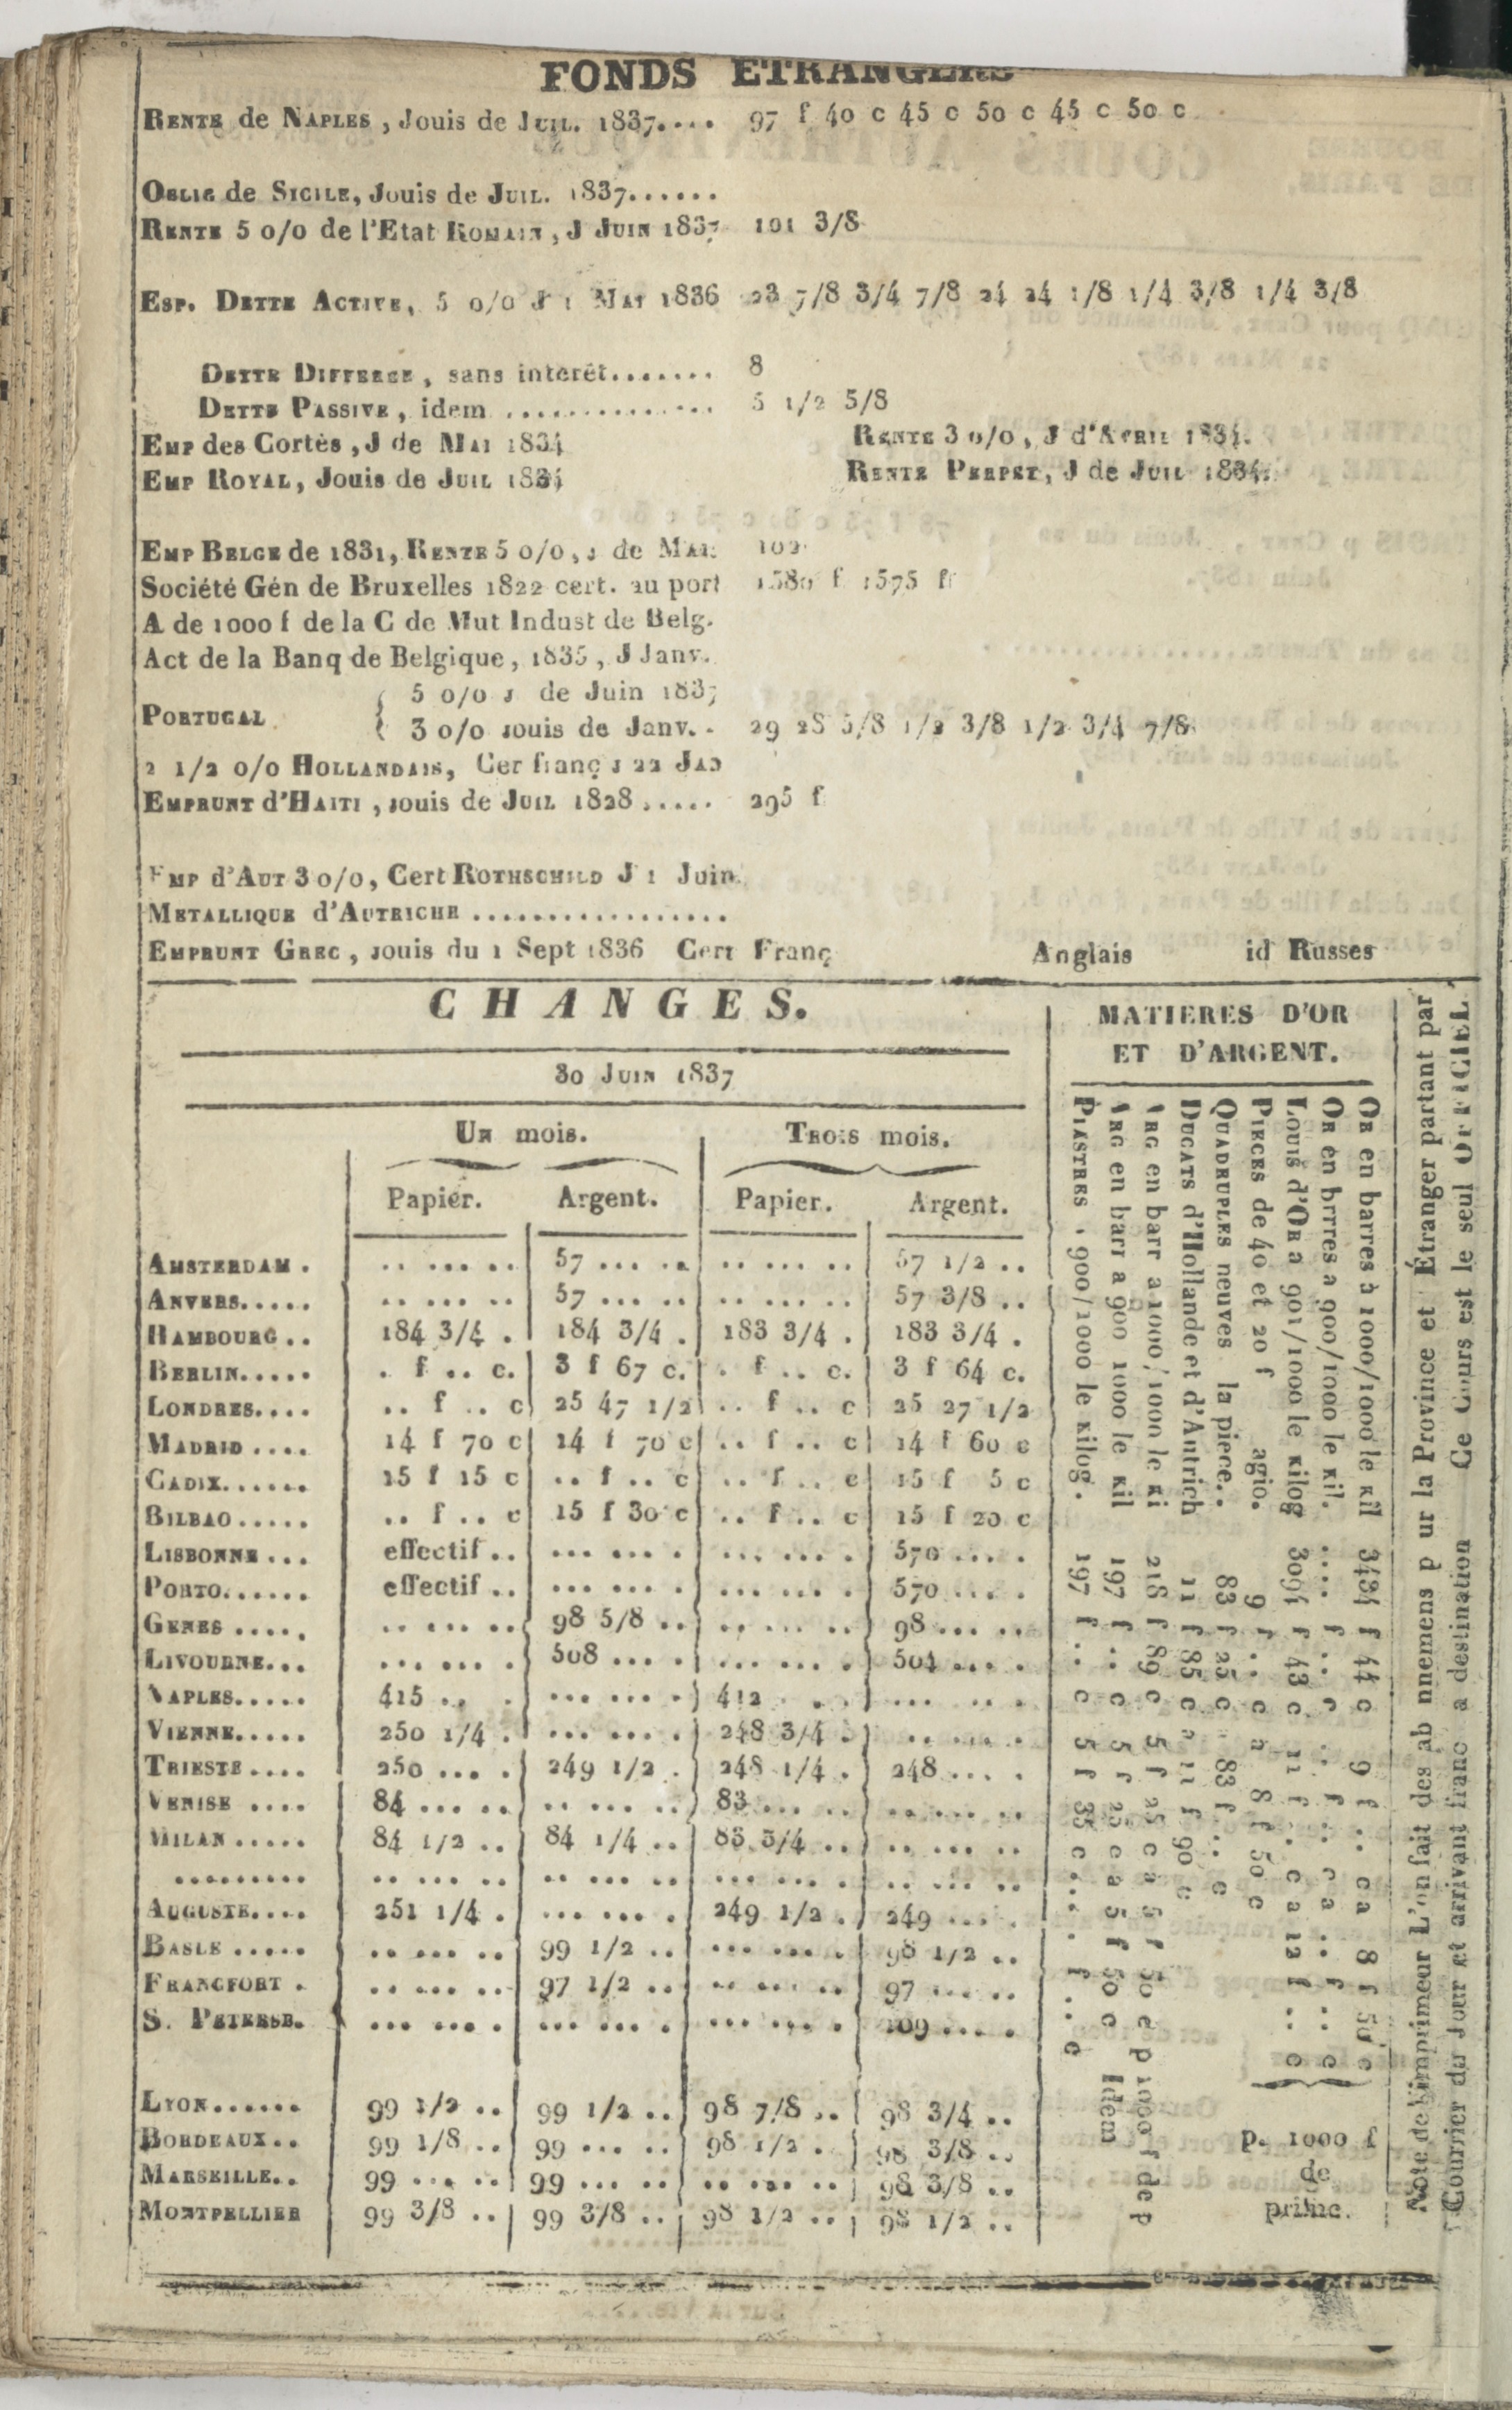 FONDS ETRANGERS
RENTE de NAPLES , Jouis de JUIL. 1837.... 97 f 40 c 45 c 50 c 45 c 50 c
OBLIG de SICILE, Jouis de JUIL. 1837......
RENTE 5 o/o de l'Etat ROMAIN , J JUIN 1837 101 3/8
ESP. DETTE ACTIVE, 5 o/o J 1 MAI 1836 23 7/8 3/4 7/8 24 24 1/8 1/4 3/8 1/4 3/8
DETTE DIFFEREE , sans intérêt....... 8
DETTE PASSIVE , idem .............. 5 1/2 5/8
EMP des Cortès , J de MAI 1834 RENTE 3 o/o , J d'AVRIL 1834.
EMP ROYAL, Jouis de JUIL 1834 RENTE PERPET, J de JUIL 1834.
EMP BELGE de 1831, RENTE 5 o/o , J de MAI 102
Société Gén de Bruxelles 1822 cert. au port 1580 f 1575 f
A de 1000 f de la C de Mut Indust de Belg.
Act de la Banq de Belgique , 1835 , J Janv.
PORTUGAL { 5 o/o J de Juin 1837
3 o/o Jouis de Janv. . 29 28 5/8 1/2 3/8 1/2 3/4 7/8
2 1/2 o/o HOLLANDAIS, Cer franç J 22 JAN
EMPRUNT d'HAITI , Jouis de JUIL 1828 ..... 295 f
EMP d'AUT 3 o/o, Cert ROTHSCHILD J 1 Juin
METALLIQUE d'AUTRICHE .................
EMPRUNT GREC , Jouis du 1 Sept 1836 Cert Franç Anglais id Russes
CHANGES.
30 JUIN 1837
UN mois. TROIS mois.
Papier. Argent. Papier. Argent.
AMSTERDAM . .. ... .. 57 ... .. .. ... .. 57 1/2 ..
ANVERS..... .. ... .. 57 ... .. .. ... .. 57 3/8 ..
HAMBOURG .. 184 3/4 . 184 3/4 . 183 3/4 . 183 3/4 .
BERLIN..... . f .. c. 3 f 67 c. . f .. c. 3 f 64 c.
LONDRES.... .. f .. c 25 47 1/2 .. f .. c 25 27 1/2
MADRID .... 14 f 70 c 14 f 70 c .. f .. c 14 f 60 c
CADIX...... 15 f 15 c .. f .. c .. f .. c 15 f 5 c
BILBAO ..... .. f .. c 15 f 30 c .. f .. c 15 f 20 c
LISBONNE ... effectif .. ... ... . ... ... . 570 .... .
PORTO...... effectif .. ... ... . ... ... . 570 .... .
GENES ..... .. ... .. 98 5/8 .. .. ... .. 98 ... ..
LIVOURNE... ... ... . 508 ... . ... ... . 504 ... .
NAPLES..... 415 .. . ... ... . 412 . . . ... .. .
VIENNE..... 250 1/4 . ... ... . 248 3/4 . .. ... .
TRIESTE .... 250 ... . 249 1/2 . 248 1/4 . 248 ... .
VENISE .... 84 ... .. .. ... .. 83 ... .. .. ... ..
MILAN ..... 84 1/2 .. 84 1/4 .. 83 3/4 .. .. ... ..
......... .. ... .. .. ... .. ... ... . .. ... ..
AUGUSTE.... 251 1/4 . ... ... . 249 1/2 . 249 ... .
BASLE ..... .. ... .. 99 1/2 .. ... ... . 98 1/2 ..
FRANCFORT . .. ... .. 97 1/2 .. .. ... .. 97 ... ..
S. PETERSB. ... ... . ... ... . ... ... . 109 ... .
LYON...... 99 1/2 .. 99 1/2 .. 98 7/8 .. 98 3/4 ..
BORDEAUX .. 99 1/8 .. 99 ... .. 98 1/2 . 98 3/8 ..
MARSEILLE.. 99 ... .. 99 ... .. .. ... .. 98 3/8 ..
MONTPELLIER 99 3/8 .. 99 3/8 .. 98 1/2 .. 98 1/2 ..
MATIERES D'OR
ET D'ARGENT.
OR en barres à 1000/1000 le Kil 3434 f 44 c 9 f .. c a 8 f 50 c
OR en brres a 900/1000 le Kil. .... f .. c .. f .. c a .. f .. c
LOUIS d'OR a 901/1000 le Kilog 3094 f 43 c 11 f .. c a 12 f .. c
PIECES de 40 et 20 f agio. 9 f .. c a 8 f 50 c
p. 1000 f
de
prime.
QUADRUPLES neuves la pièce.. 83 f 25 c 83 f .. c
DUCATS d'Hollande et d'Autrich 11 f 85 c a 11 f 90 c
ARG en barr a 1000/1000 le Ki 218 f 89 c 5 f 25 c a 5 f 50 c p 1000 f de p
ARG en barr a 900 1000 le Kil 197 f .. c 5 f 25 c a 5 f 50 c Idem
PIASTRES , 900/1000 le Kilog. 197 f .. c 5 f 35 c ... . f .. c
Note de l'imprimeur L'on fait des ab nnemens p ur la Province et Étranger partant par
Courrier du Jour et arrivant franc a destination Ce Cours est le seul OFFICIEL